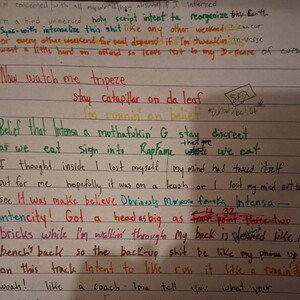 concerned with all
I'm a bird unnerved holy script intent to reorganize
Sync-with internalize this shit like any other weekend
or every other weekend for real depend if I'm tweakin'
went a little hard on offend so leave not to my D-
Now watch me tripeze
stay catapillar on da leaf
I'm runnin' on belief
Belief that Intensa a muthafukin' G stay discreet
as we eat sign into RapFame we eat
I thought inside I lost myself my mind had taxed itself
but for me hopefully it was on a leash or I lost my mind
see It was make believe Obviously Intensa—
intencity! Got a head as big as four three two
bricks while I'm walkin' through My back is like
bench back so the back-up shit be like my phone up
on this track Intent to like run it like a runnin
yeah! like a coach Ima tell you what your